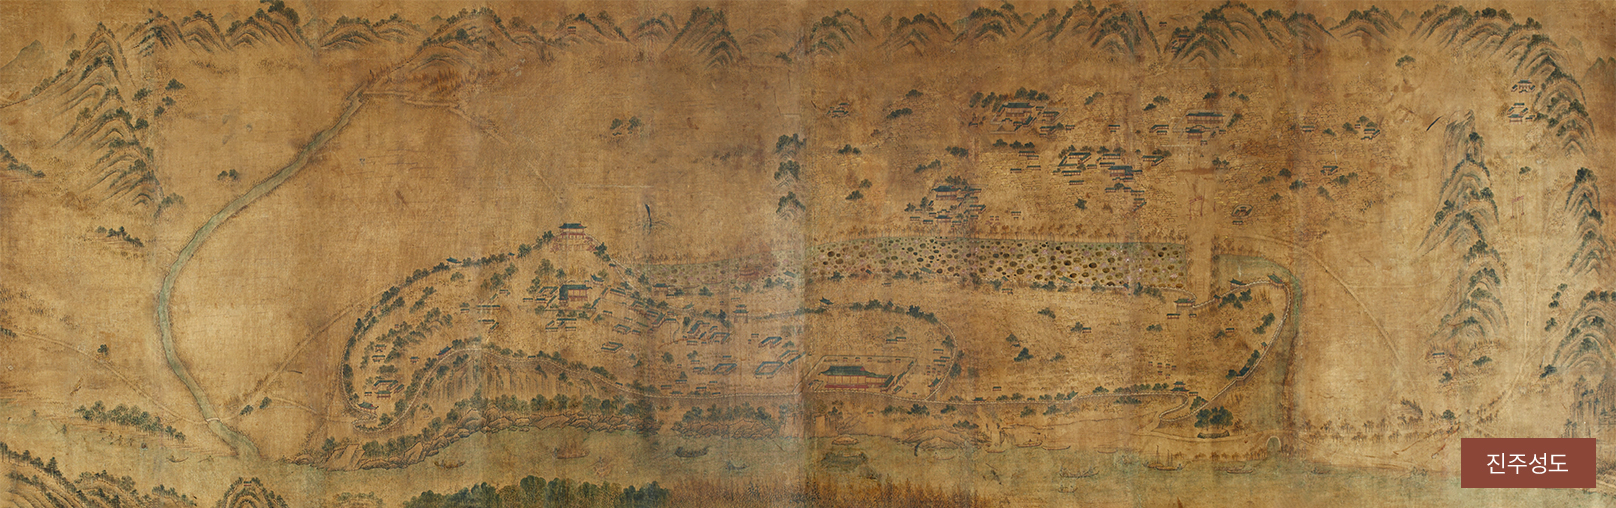 진주성도